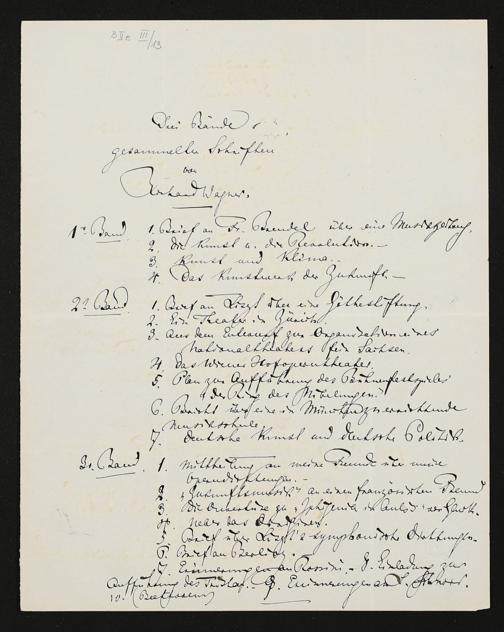 B II e III/13
Drei Bände
gesammelter Schriften
von
Richard Wagner.
1r Band. 1. Brief an Fr. Brendel über eine Musikzeitung.
2. Die Kunst u. die Revolution. —
3. Kunst und Klima. —
4. Das Kunstwerk der Zukunft. —
2r Band 1. Brief an Liszt über eine Göthestiftung.
2. Ein Theater in Zürich.
3. Aus dem Entwurf zur Organisation eines
Nationaltheaters für Sachsen.
4. Das Wiener Hofoperntheater.
5. Plan zur Aufführung des Bühnenfestspieles
„der Ring des Nibelungen."
6. Bericht über eine in München zu errichtende
Musikschule.
7. Deutsche Kunst und deutsche Politik.
3r. Band. 1. Mittheilung an meine Freunde über meine
Operndichtungen. —
2. „Zukunftsmusik" an einen französischen Freund
3. Die Ouvertüre zu „Iphigenia in Aulis"
4. Ueber das Dirigiren.
5. Brief über Liszt's symphonische Dichtungen.
6. Brief an Berlioz.
7. Erinnerungen an Rossini. — 8. Einladung zur
Aufführung des Tristan. — 9. Erinnerungen an L. Schnorr.
10. (Beethoven)